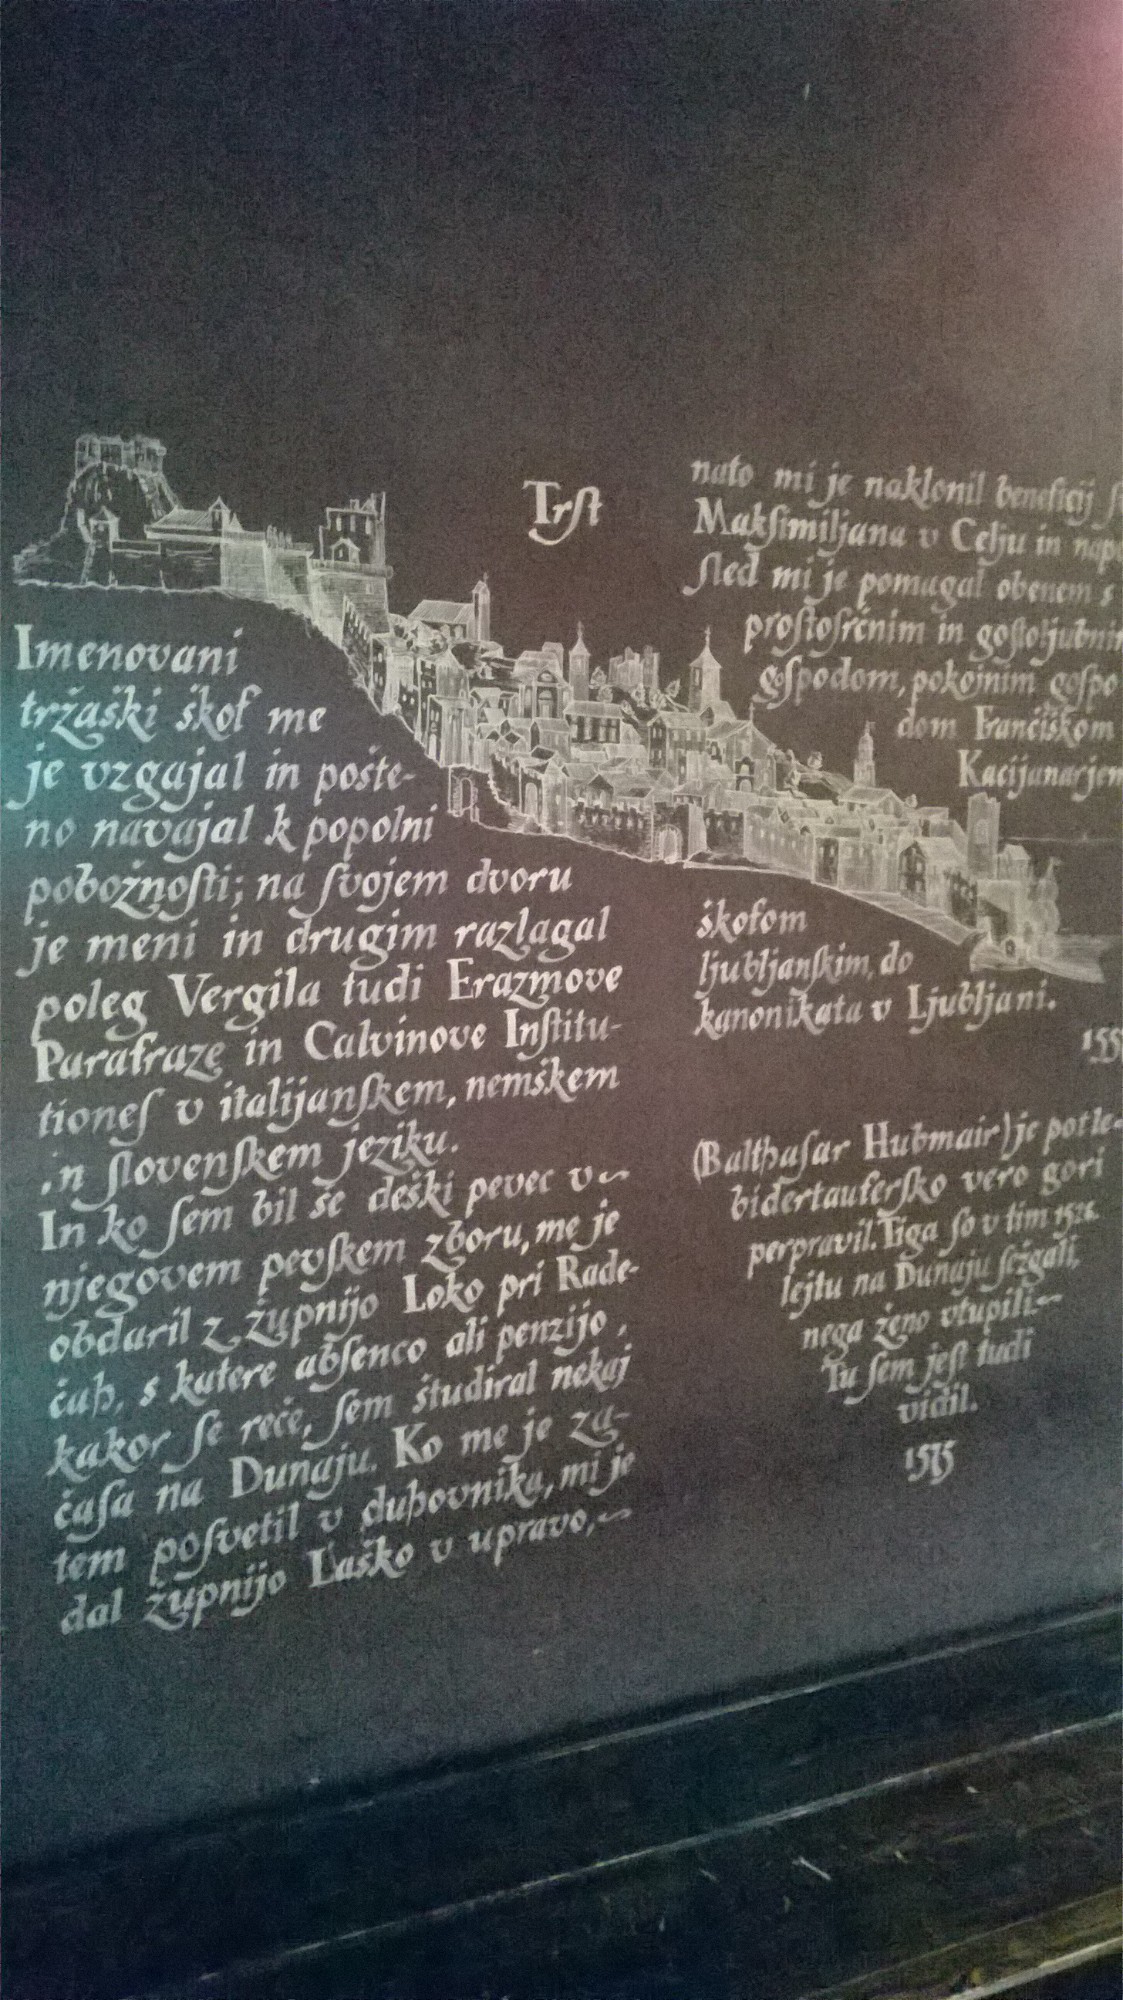 Trſt
Imenovani
tržaški škof me
je vzgajal in pošte-
no navajal k popolni
pobožnoſti; na ſvojem dvoru
je meni in drugim razlagal
poleg Vergila tudi Erazmove
Parafraze in Calvinove Inſtitu-
tioneſ v italijanſkem, nemškem
in ſlovenſkem jeziku.
In ko ſem bil še deški pevec v
njegovem pevſkem zboru, me je
obdaril z župnijo Loko pri Rade-
čah, s katere abſenco ali penzijo,
kakor ſe reče, ſem študiral nekaj
čaſa na Dunaju. Ko me je za-
tem poſvetil v duhovnika, mi je
dal župnijo Laško v upravo,
nato mi je naklonil beneficij
Makſimiljana v Celju in
ſled mi je pomagal obenem s
proſtoſrčnim in
goſpodom, pokojnim goſpo
dom Frančiškom
škofom
ljubljanſkim, do
kanonikata v Ljubljani.
(Balthaſar Hubmair) je potle-
bidertauferſko vero gori
perpravil. Tiga ſo v tim 1528.
lejtu na Dunaju ſežgali,
nega ženo vtupili.
Tu ſem jeſt tudi
vidil.
1575